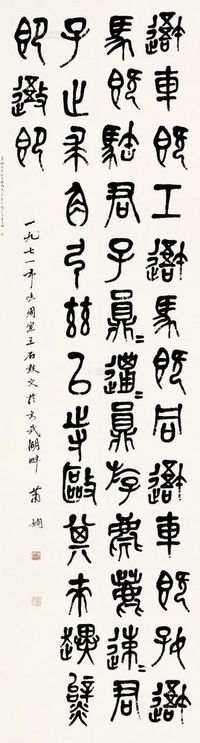 吾車既工吾馬既同吾車既好吾
馬既駓君子員邋員斿麀鹿速君
子之求角弓茲以寺毆其來趩
即吾即
一九七一年 周宣王石鼓文於玄武湖畔 蕭嫻